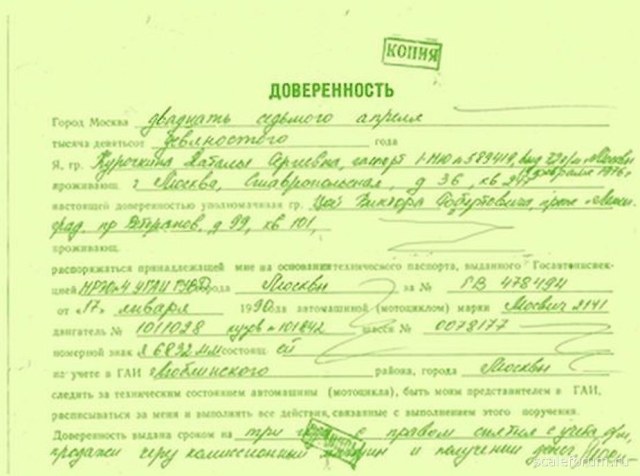 КОПИЯ
ДОВЕРЕННОСТЬ
Город Москва двадцать седьмого апреля
тысяча девятьсот девяностого года
Я, гр. Курочкина Наталья Сергеевна, паспорт I-МЮ № 589419, выд 72 о/м Москвы
проживающ. г Москва, Ставропольская, д 36, кв 247 февраля 1976 г
настоящей доверенностью уполномачивая гр. Цой Виктора Робертовича, прож Ленин
град, пр Ветеранов, д 99, кв 101,
проживающ.
распоряжаться принадлежащей мне на основании технического паспорта, выданного Госавтоинспек-
цией УГАИ ГУВД города Москвы за № ГВ 478494
от «17» января 1990 года автомашиной (мотоциклом) марки Мосвич 2141
двигатель № 1011028 кузов № 101842 шасси № 0078177
номерной знак 6832 ММ состоящ ей
на учете в ГАИ Люблинского района, города Москвы
следить за техническим состоянием автомашины (мотоцикла), быть моим представителем в ГАИ,
расписываться за меня и выполнять все действия, связанные с выполнением этого поручения.
Доверенность выдана сроком на три с правом снятия с учета
продажи через комиссионный и получения денег
scaleforum.ru